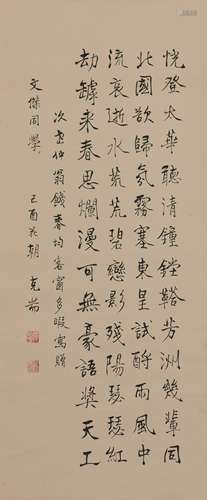 恍登太華聽清鐘鏜鞳芳洲幾輩同
北國欲歸氛霧塞東皇試酹雨風中
流哀逝水荒荒碧戀影殘陽瑟瑟紅
劫罅来春思爛漫可無豪語獎天工
次老仲翁餞春均客窗多暇寫贈
文傑同學
己酉花朝 克耑